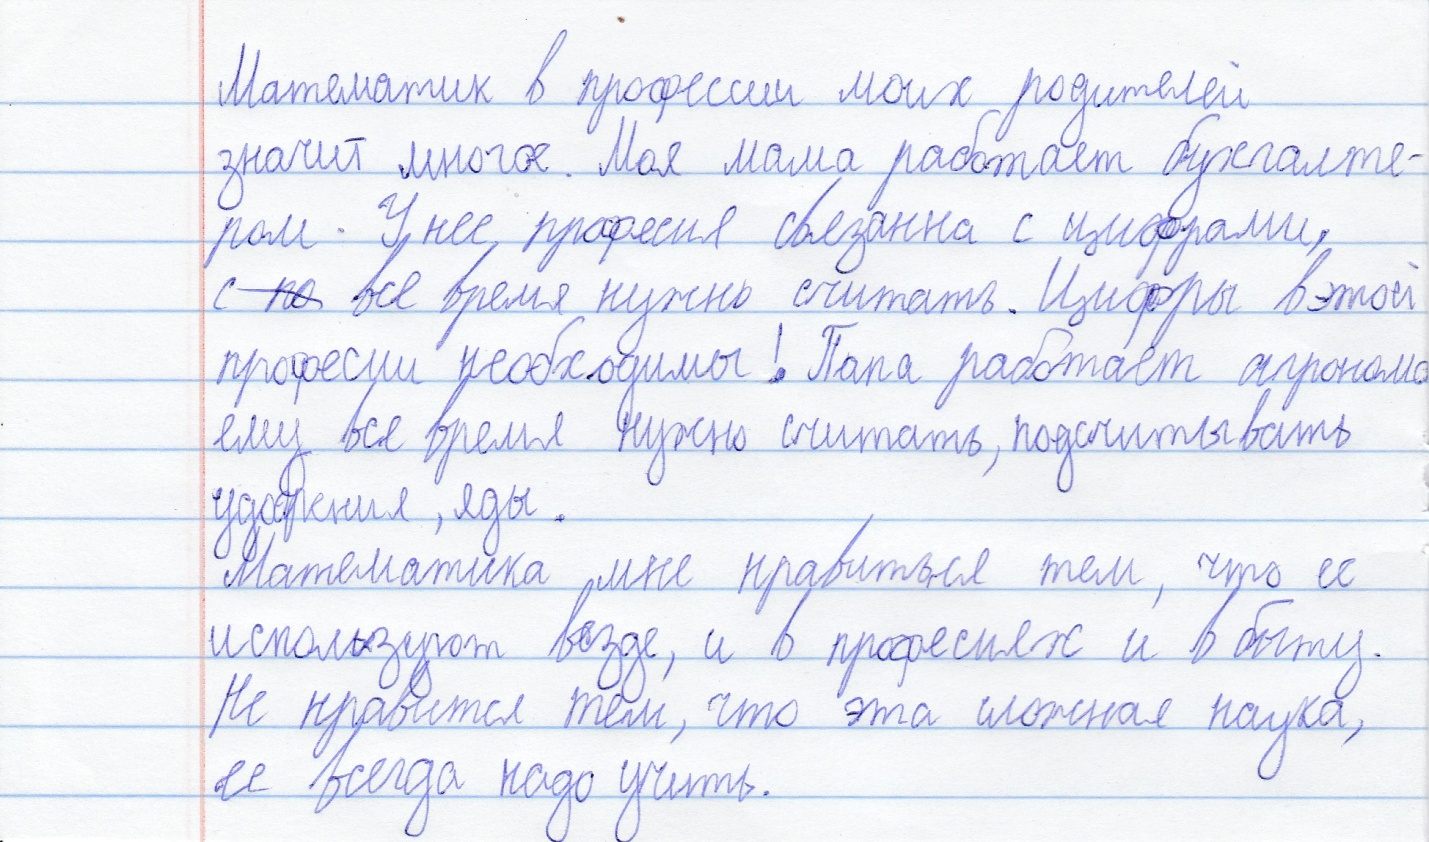 Математик в професии моих родителей
значит многое. Моя мама работает бухгалте-
ром. У нее професия связанна с цифрами,
с все время нужно считать. Цифры в этой
професии необходимы! Папа работает агрономо
ему все время нужно считать, подсчитывать
удобрения, яды.
Математика мне нравиться тем, что ее
используют везде, и в професиях и в быту.
Не нравится тем, что эта сложная наука,
ее всегда надо учить.